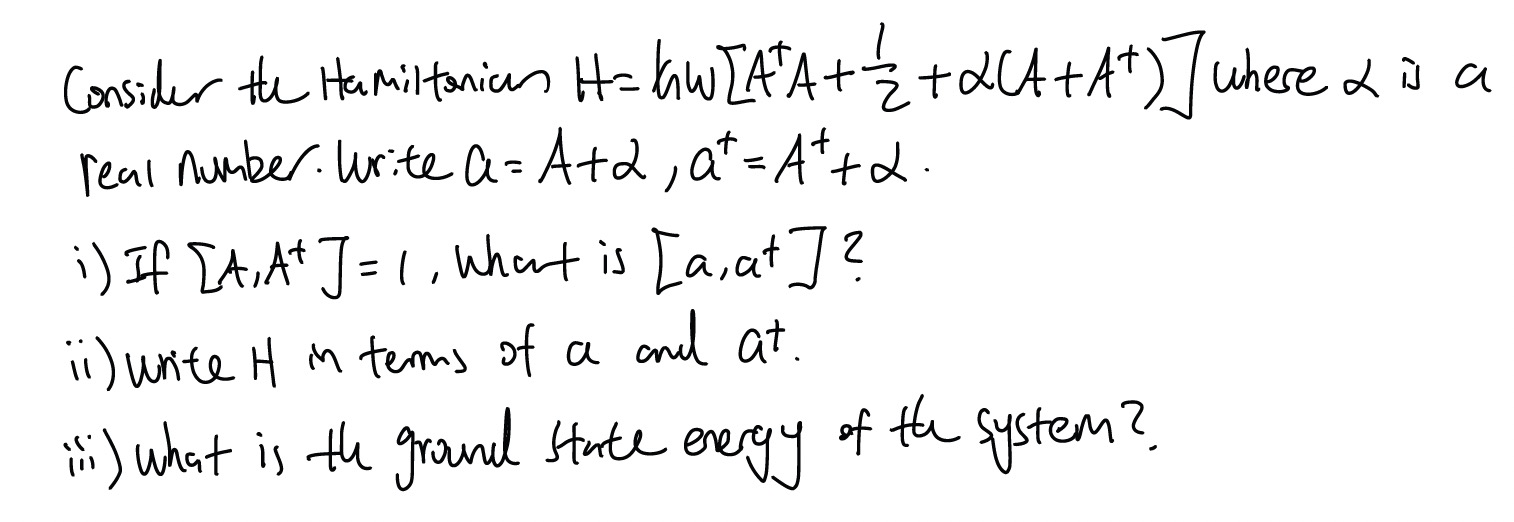 Consider the Hamiltonian H=ħw[A†A+1/2+α(A+A†)] where α is a
real number. Write a=A+α, a†=A†+α.
i) If [A,A†]=1, what is [a,a†]?
ii) write H in terms of a and a†.
iii) what is the ground state energy of the system?